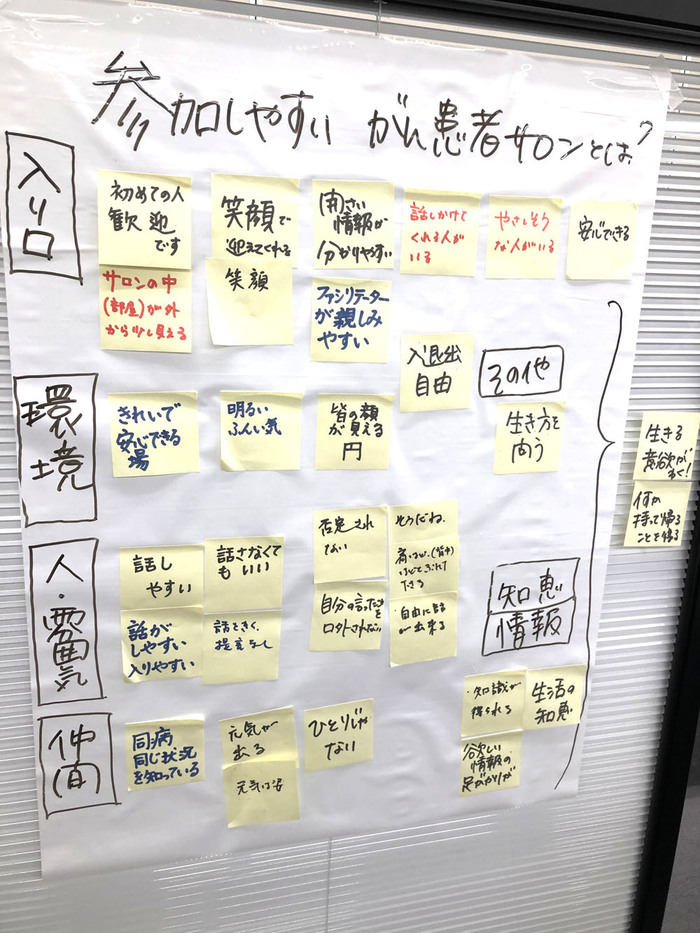 参加しやすい がん患者サロンとは?
入り口
初めての人
歓迎
です
笑顔で
迎えてくれる
情報が
分かりやすい
話しかけて
くれる人が
いる
やさしそう
な人がいる
安心できる
サロンの中
(部屋)が外
から少し見える
笑顔
ファシリテーター
が親しみ
やすい
入退出
自由
環境
きれいで
安心できる
場
明るい
ふんい気
皆の顔
が見える
円
その他
生き方を
向う
生きる
意欲が
わく!
何か
持って帰る
ことを帰る
人・雰囲気
話し
やすい
話さなくて
もいい
否定され
ない
そうだね、
話が
しやすい
入りやすい
話をきく、
提言なし
自分の言ったことを
口外されない
・自由に話
が出来る
知恵
情報
仲間
同病
同じ状況
を知っている
元気が
出る
元気な姿
ひとりじゃ
ない
・知識が
得られる
生活の
知恵
欲しい
情報の
足がかりが